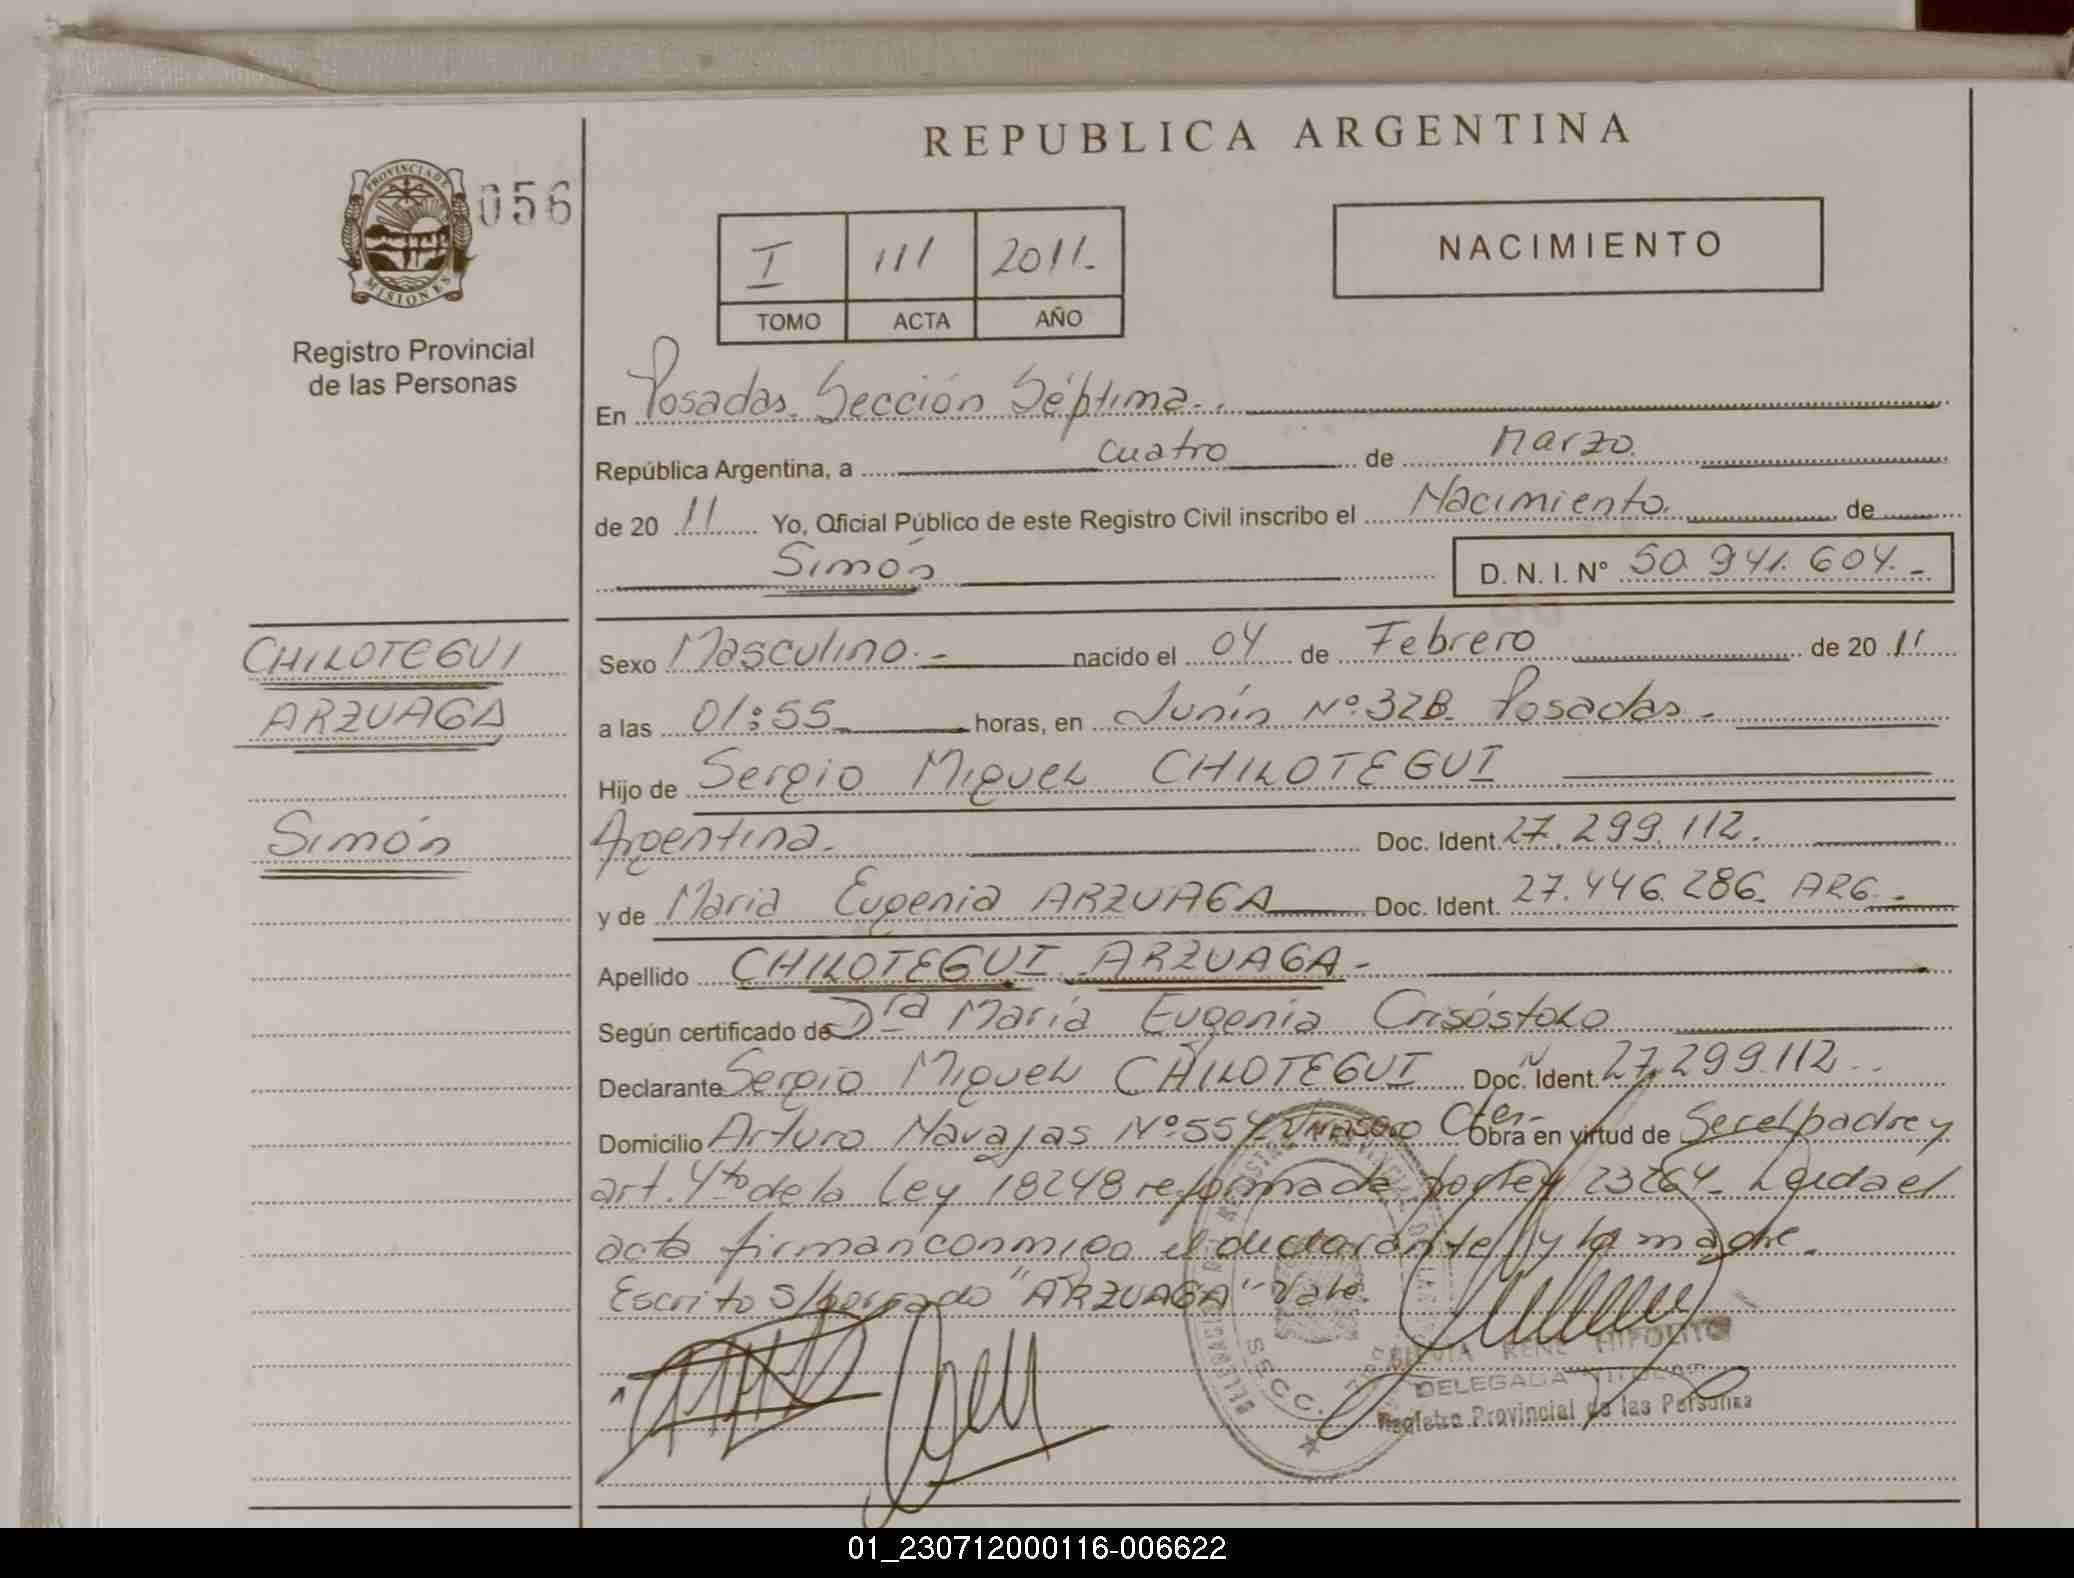 REPUBLICA ARGENTINA
PROVINCIA DE
MISIONES
056
Registro Provincial
de las Personas
I 111 2011.-
TOMO ACTA AÑO
NACIMIENTO
En Posadas. Sección Séptima.
República Argentina, a cuatro de Marzo.
de 20 11 Yo, Oficial Público de este Registro Civil inscribo el Nacimiento. de
Simón D. N. I. N° 50.941.604.-
CHILOTEGUI
ARZUAGA
Simón
Sexo Masculino.- nacido el 04 de Febrero de 20 11
a las 01:55 horas, en Junín Nº 328. Posadas.-
Hijo de Sergio Miguel CHILOTEGUI
Argentina. Doc. Ident. 27.299.112.
y de Maria Eugenia ARZUAGA Doc. Ident. 27.446.286. ARG.-
Apellido CHILOTEGUI ARZUAGA-
Según certificado de Dra María Eugenia Crisóstomo
Declarante Sergio Miguel CHILOTEGUI Doc. Ident. 27.299.112..
Domicilio Arturo Navajas Nº 554 Obra en virtud de Ser el padre y
art. 4to de la Ley 18248 reformada por Ley 23264. Leida el
acta firman conmigo el declarante y la madre.
Escrito s/borrado "ARZUAGA" Vale.
SECC.
SILVIA RENE HIPOLITO
DELEGADA TITULAR
Registro Provincial de las Personas
01_230712000116-006622